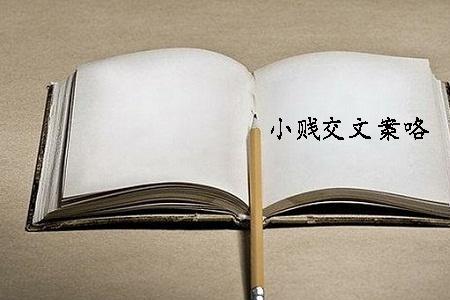 小贱交文案咯